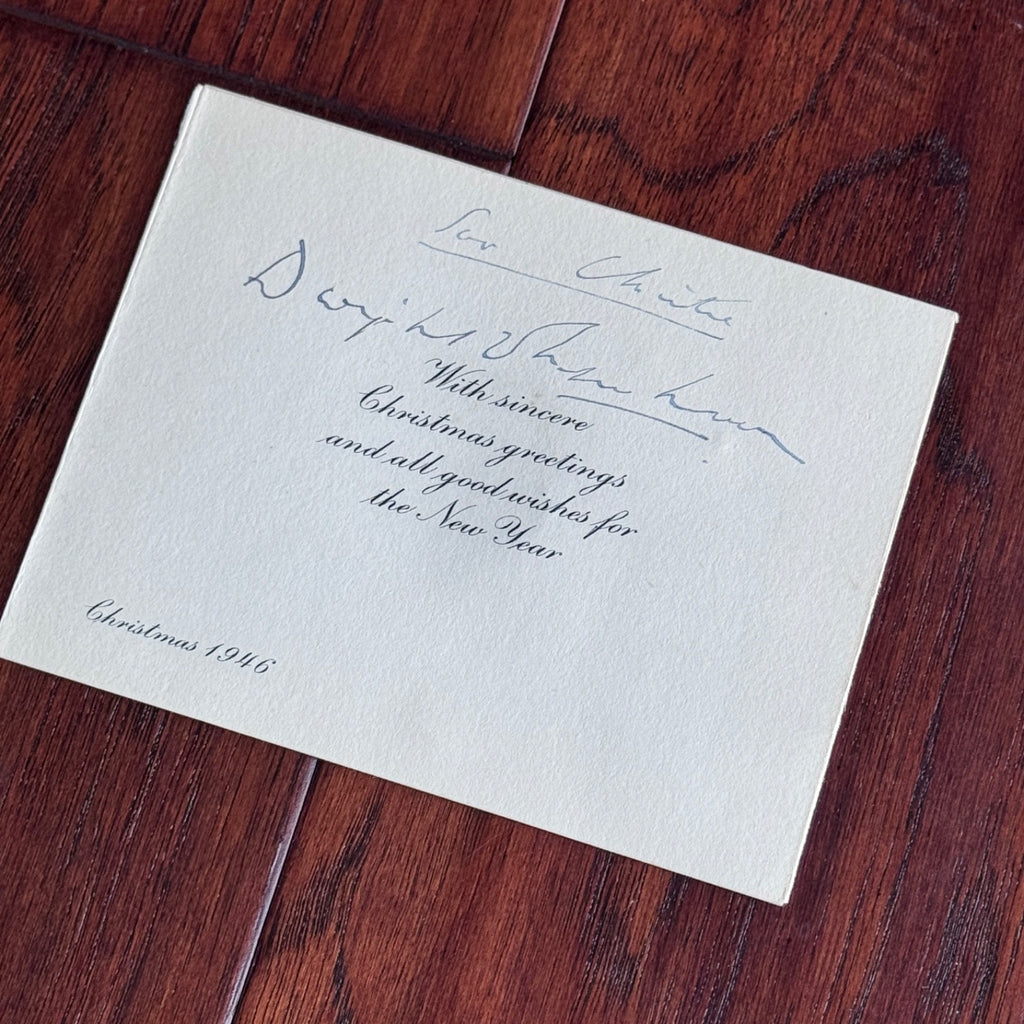 For
Dwight Eisenhower
With sincere
Christmas greetings
and all good wishes for
the New Year
Christmas 1946